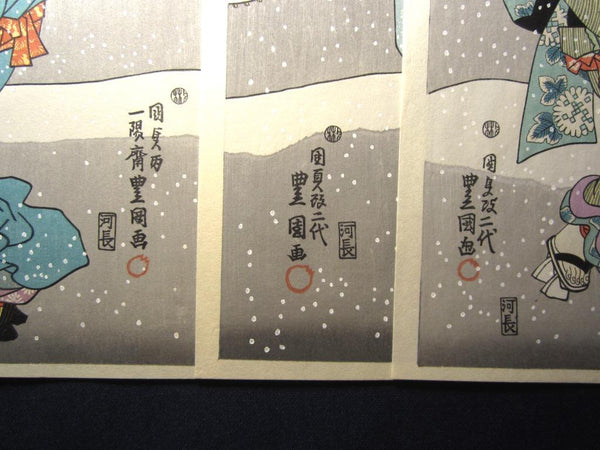 国貞改二代
豊国画
河長
国貞改二代
豊国画
河長
国貞改
一陽斎豊国画
河長